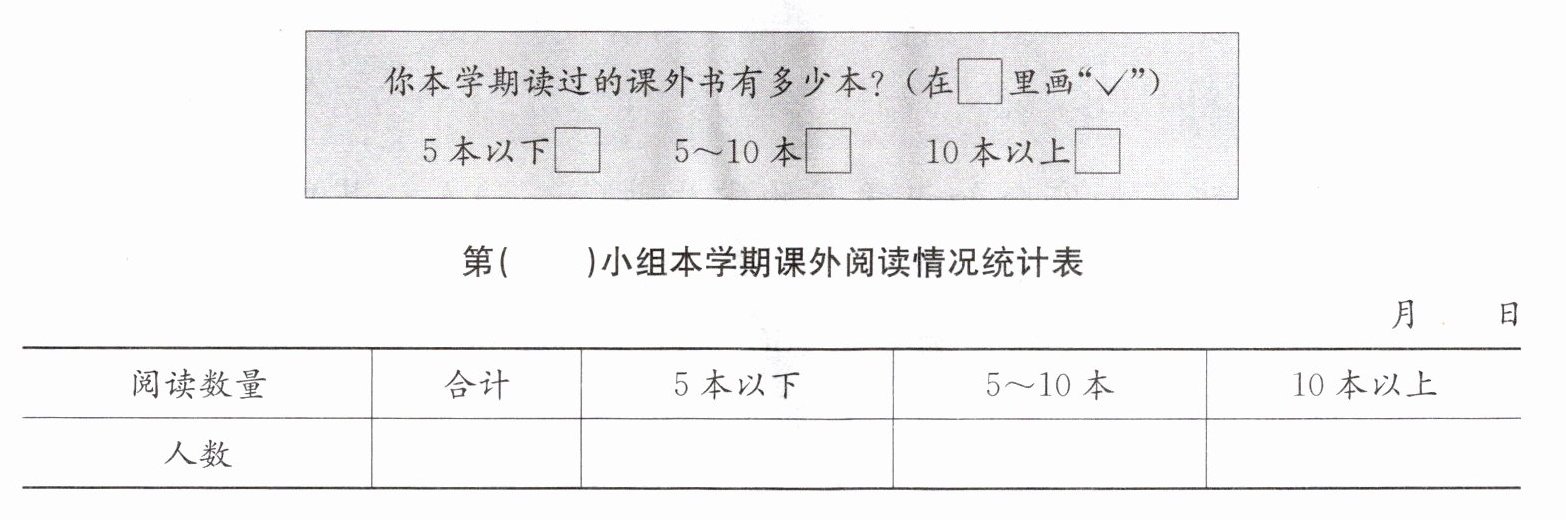 你本学期读过的课外书有多少本？（在□里画“✓”）
5本以下□ 5～10本□ 10本以上□
第( )小组本学期课外阅读情况统计表
月 日
阅读数量 合计 5本以下 5～10本 10本以上
人数